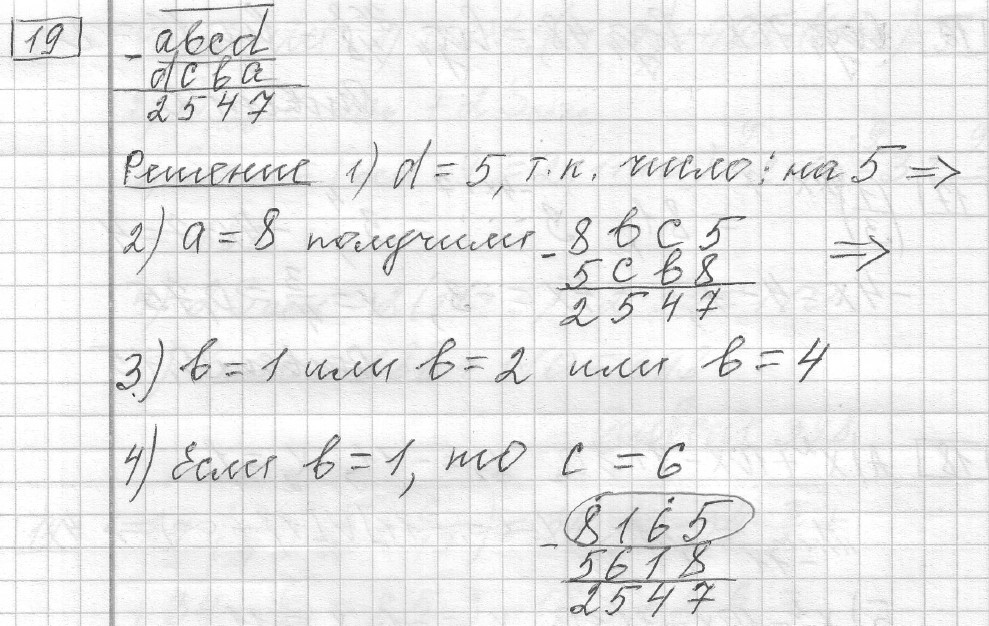 19
abcd
- dcba
2547
Решение 1) d = 5, т.к. число ⋮ на 5 =>
2) a = 8 получили - 8bc5 =>
5cb8
2547
3) b = 1 или b = 2 или b = 4
4) Если b = 1, то c = 6
8165
- 5618
2547